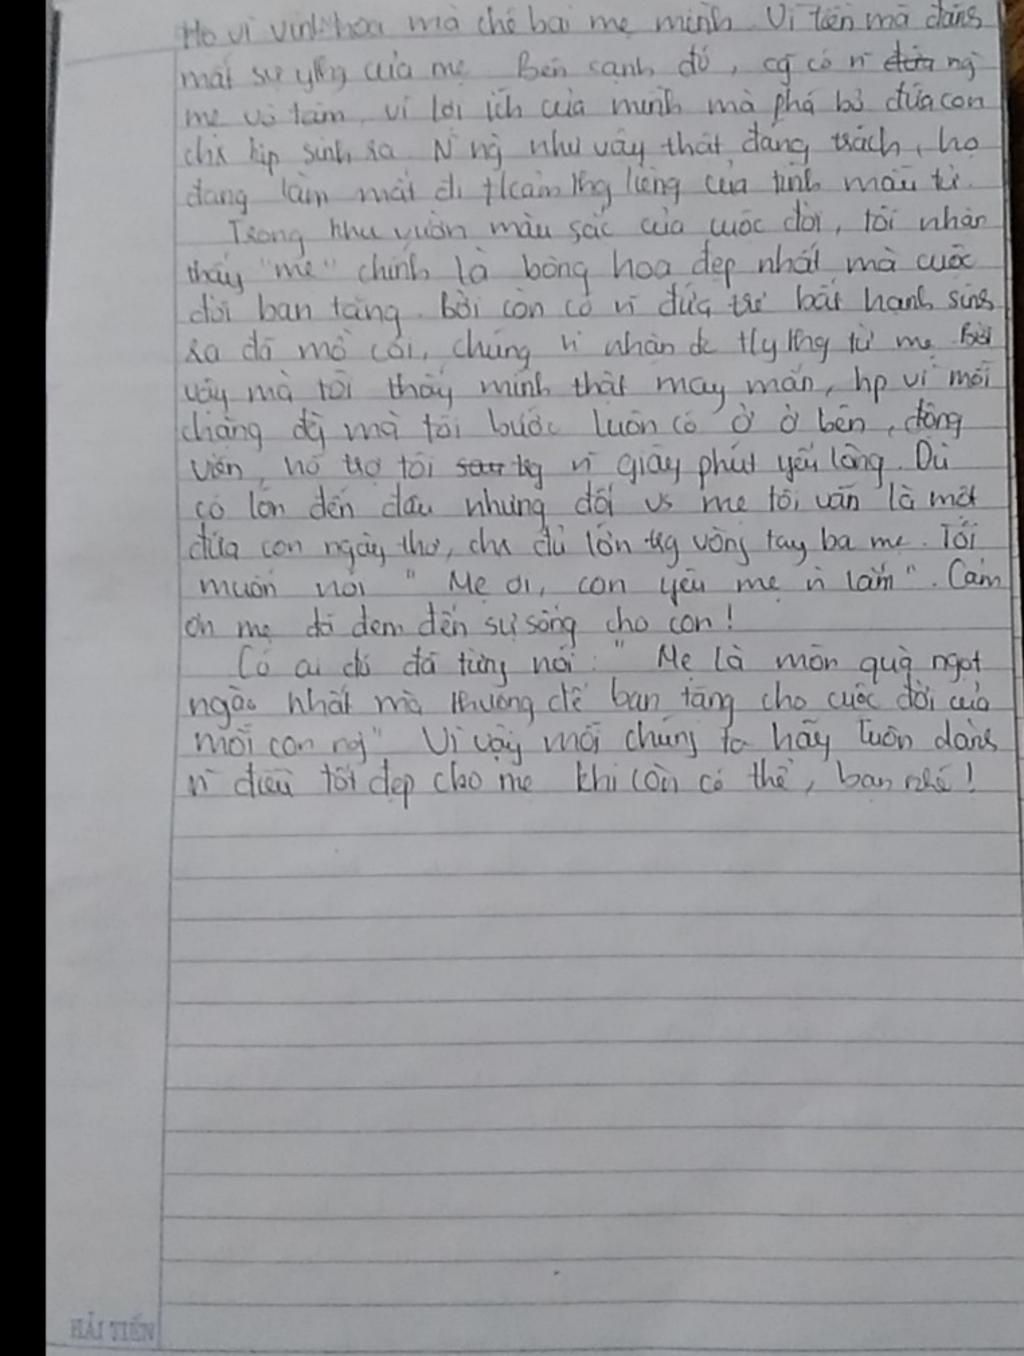 Họ vì vinh hoa mà chê bai mẹ mình. Vì tiền mà đánh
mất sự yth của mẹ. Bên cạnh đó, cg có n~ đứa ng`
mẹ vô tâm, vì lợi ích của mình mà phá bỏ đứa con
chx kịp sinh ra. N~ ng` như vậy thật đáng trách, họ
đang làm mất đi t/cảm thg liêng của tình mẫu tử.
Trong khu vườn màu sắc của cuộc đời, tôi nhận
thấy "mẹ" chính là bông hoa đẹp nhất mà cuộc
đời ban tặng. Bởi còn có n~ đứa trẻ bất hạnh sinh
ra đã mồ côi, chúng nhận từ mẹ. Bởi
vậy mà tôi thấy mình thật may mắn, hp vì mỗi
chặng đg` mà tôi bước luôn có ở bên, động
viên, hỗ trợ tôi sau trg n~ giây phút yếu lòng. Dù
có lớn đến đâu nhưng đối vs mẹ tôi vẫn là một
đứa con ngây thơ, chx đủ lớn trg vòng tay ba mẹ. Tôi
muốn nói " Mẹ ơi, con yêu mẹ n` lắm". Cảm
ơn mẹ đã đem đến sự sống cho con!
Có ai đó đã từng nói: " Mẹ là món quà ngọt
ngào nhất mà thượng đế ban tặng cho cuộc đời của
mỗi con ng`" Vì vậy mỗi chúng ta hãy luôn dành
n~ điều tốt đẹp cho mẹ khi còn có thể, bạn nhé!
HẢI TIẾN